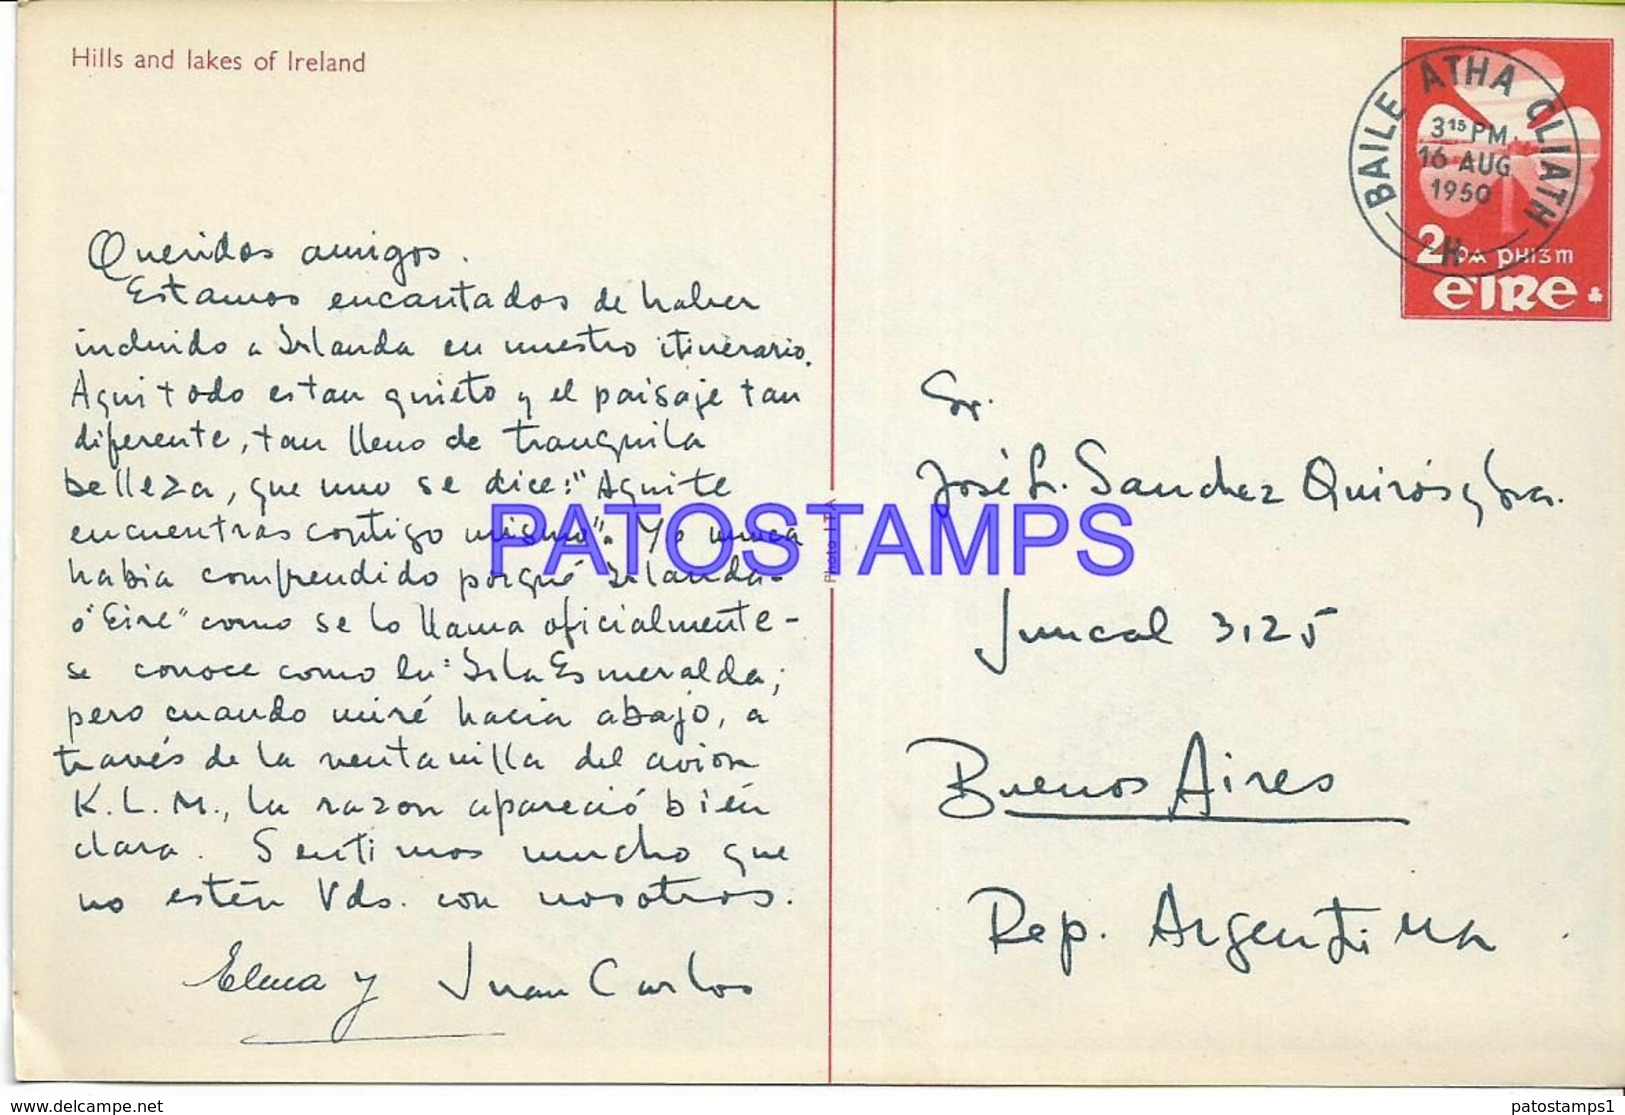 Hills and lakes of Ireland
Queridos amigos.
Estamos encantados de haber
incluido a Irlanda en nuestro itinerario.
Aqui todo es tan quieto y el paisaje tan
diferente, tan lleno de tranquila
belleza, que uno se dice: "Aqui te
encuentras contigo mismo". Yo nunca
habia comprendido porqué Irlanda-
o "Eire" como se lo llama oficialmente-
se conoce como la Isla Esmeralda;
pero cuando miré hacia abajo, a
través de la ventanilla del avion
K.L.M., la razon apareció bién
clara. Sentimos mucho que
no estén Vds. con nosotros.
Elena y Juan Carlos
Photo ITA
BAILE ATHA CLIATH
3 15 PM
16 AUG
1950
H
2
éire
Sr.
José L. Sanchez Quirós y Sra.
Juncal 3125
Buenos Aires
Rep. Argentina
PATOSTAMPS
www.delcampe.net
patostamps1